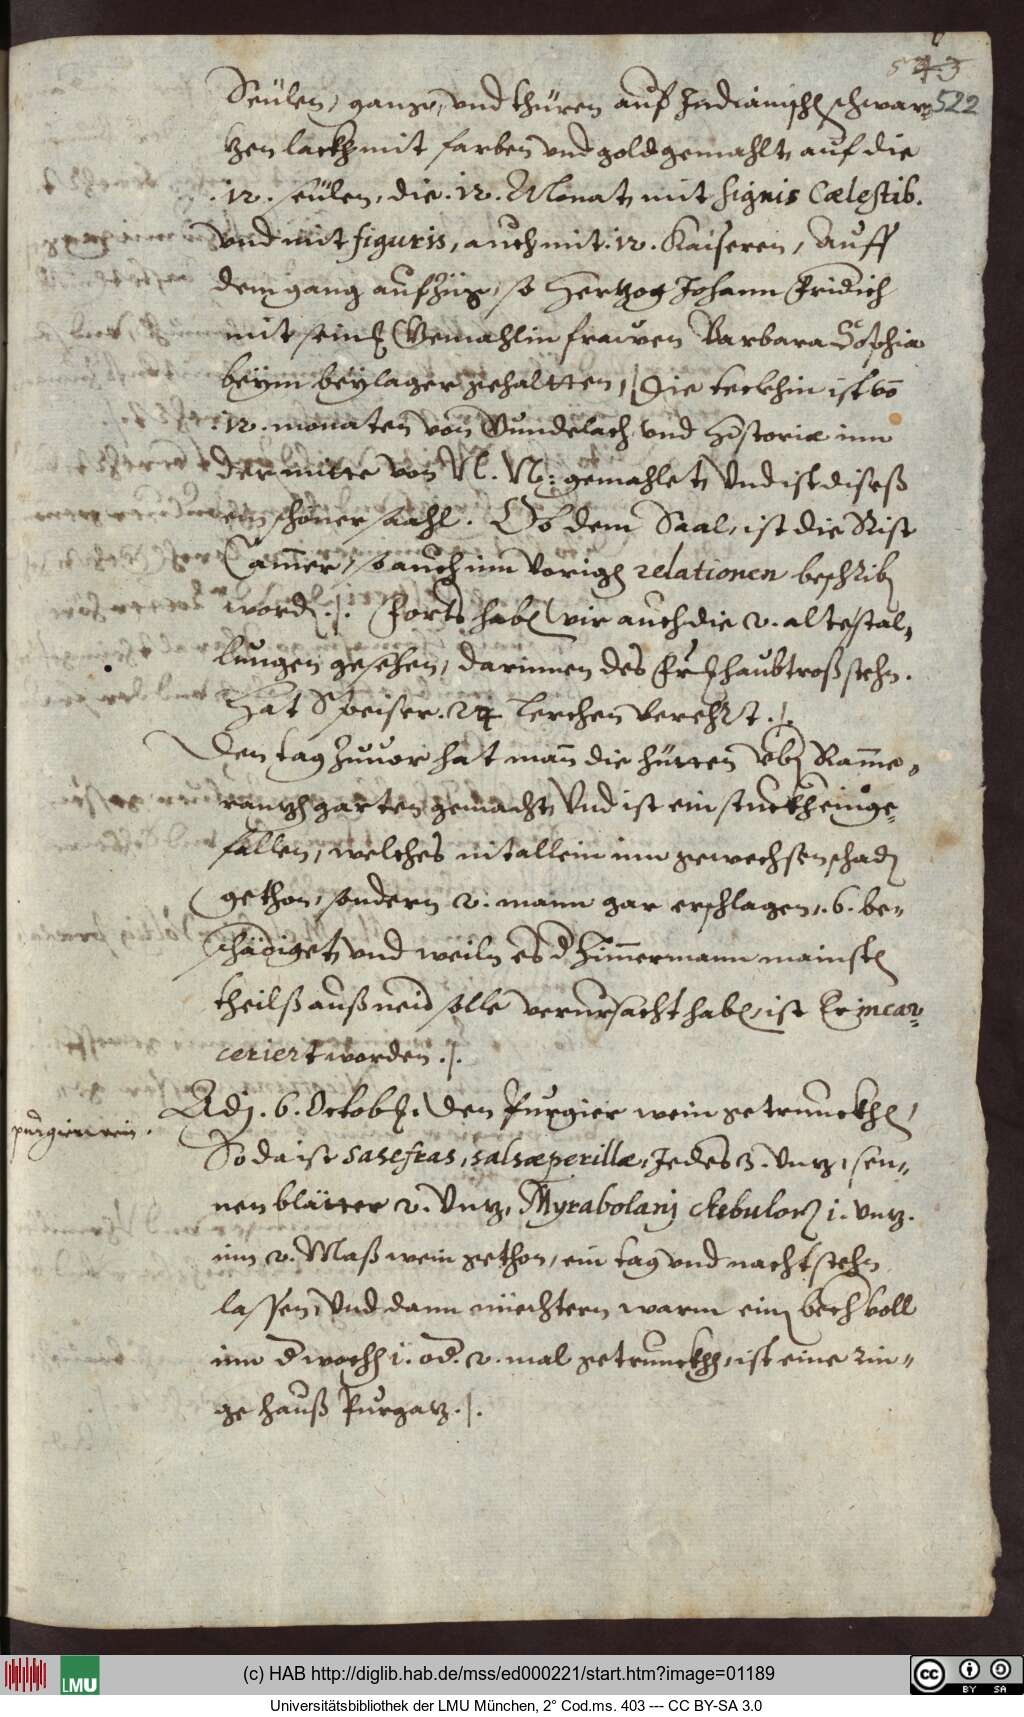 543
522
Seülen, gänge, vnd thüren auf Indianisch schwar-
zen lackh mit farben vnd gold gemahlt, auf die
.12. seülen, die .12. Monat, mit signis Cælestib.
vnd mit figuris, auch mit .12. Kaiseren, Auff
dem gang aufzüg, so Hertzog Johann Fridrich
mit seiner Gemahlin frawen Barbara Sophia
beÿm beÿlager gehaltten, die teckhin ist von
.12. monaten von Gundelach, vnd Historiæ inn
der mitte von N. N: gemahlet, Vnd ist diseß
ein schöner saahl. Ob dem Saal, ist die Rist
Camer, so auch inn vorigen relationen beschriben
worden ./. Forts haben wir auch die 2. alte stal,
lungen gesehen, darinnen des haubtroß stehn.
Hat Speiser. 24 lerchen verehrt ./.
Den tag zuuor hat mann die hütten vber Ramme,
gartengemacht, Vnd ist ein stuckh einge-
fallen, welches nit allein inn gewechsen schaden
gethon, sondern 2. mann gar erschlagen, .6. be-
schädiget, vnd weiln es der Zimmermann mainsten
theilß auß neid solle verursacht haben, ist Er incar-
ceriert worden ./.
Adj. 6. Octobr. den Purgier wein getrunckhen,
purgierwein.
So da ist sasefras, salsæperillæ, Jedes 3. Vntz, sen-
nen blätter 2. Vntz, Myrabolanj chebulor. 1. Vntz.
inn 2. Maß wein gethon, ein tag vnd nacht stehn
lassen, Vnd dann nüechtern warm ein bech voll
inn der wochen 1. od. 2. mal getrunckhen, ist eine rin-
ge hauß Purgatz ./.
(c) HAB http://diglib.hab.de/mss/ed000221/start.htm?image=01189
LMU
cc BY SA
Universitätsbibliothek der LMU München, 2° Cod.ms. 403 --- CC BY-SA 3.0